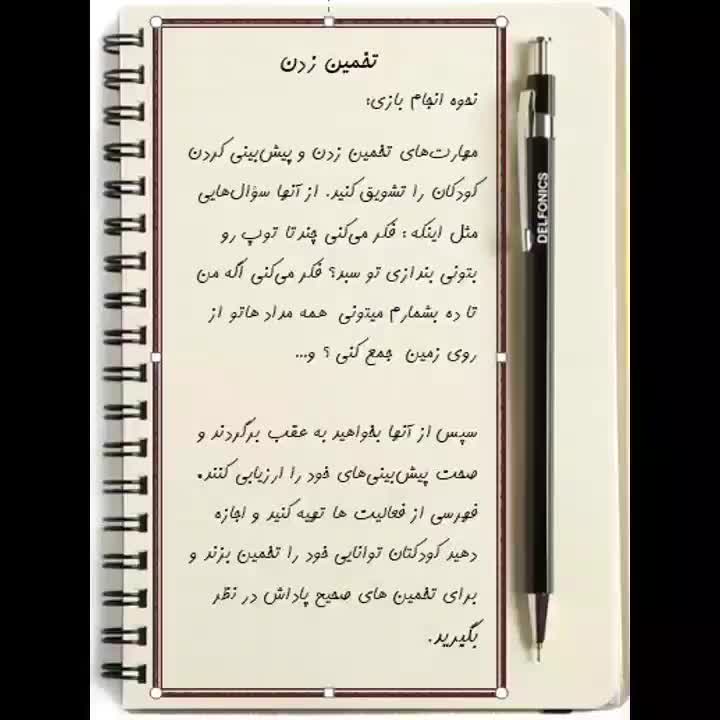 تخمین زدن
نحوه انجام بازی:
مهارت‌های تخمین زدن و پیش‌بینی کردن
کودکان را تشویق کنید. از آنها سؤال‌هایی
مثل اینکه : فکر می‌کنی چندتا توپ رو
بتونی بندازی تو سبد؟ فکر می‌کنی اگه من
تا ده بشمارم میتونی همه مداد هاتو از
روی زمین جمع کنی ؟ و...
سپس از آنها بخواهید به عقب برگردند و
صحت پیش‌بینی‌های خود را ارزیابی کنند.
فهرسی از فعالیت ها تهیه کنید و اجازه
دهید کودکتان توانایی خود را تخمین بزند و
برای تخمین های صحیح پاداش در نظر
بگیرید.
DELFONICS